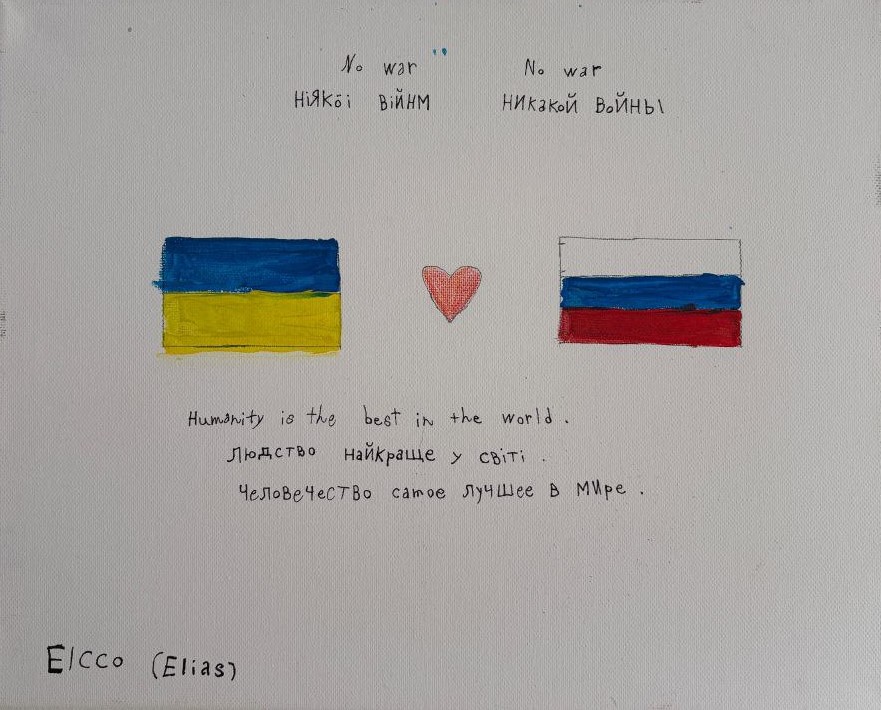 No war No war
Ніякоі війнм никакой войны
Humanity is the best in the world.
Людство найкраще у світі.
Человечество самое лучшее в мире.
Elcco (Elias)